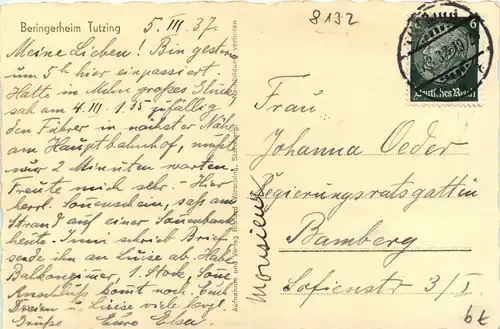 Beringerheim Tutzing
5. III. 37.
8132
Meine Lieben! Bin gestern
um 5 h hier einpassiert.
Hatte in Mchn großes Glück,
sah am 4. III. 1.35 zufällig
den Führer in nächster Nähe
am Hauptbahnhof, mußt
nur 2 Minuten warten.
Freute mich sehr. Hier
herrl. Sonnenschein, saß am
Strand auf einer Sonnenbank
heute. Irmi schrieb Brief
sende ihn an Luise ab. Habe
Balkonzimmer, 1. Stock, Sonne
Anschluß kommt noch. Euch
Dreien u Luise viele herzl.
Grüße Eure Elsa.
6
Deutsches Reich
Frau
Johanna Oeder
Regierungsratsgattin
Bamberg
Sofienstr 3/I